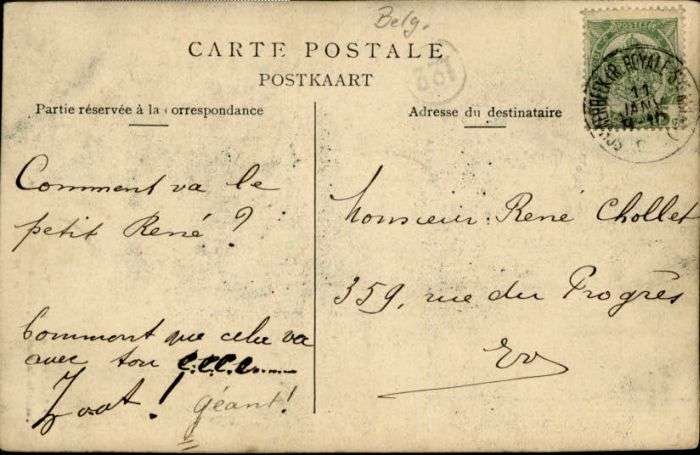 Belg.
CARTE POSTALE
POSTKAART
Partie réservée à la correspondance
Adresse du destinataire
Comment va le
petit René?
Comment que cela va
avec ton c.c.c.c......
Zoot! géant!
Monsieur René Chollet
359, rue du Progrès
EV
102
11
JANV